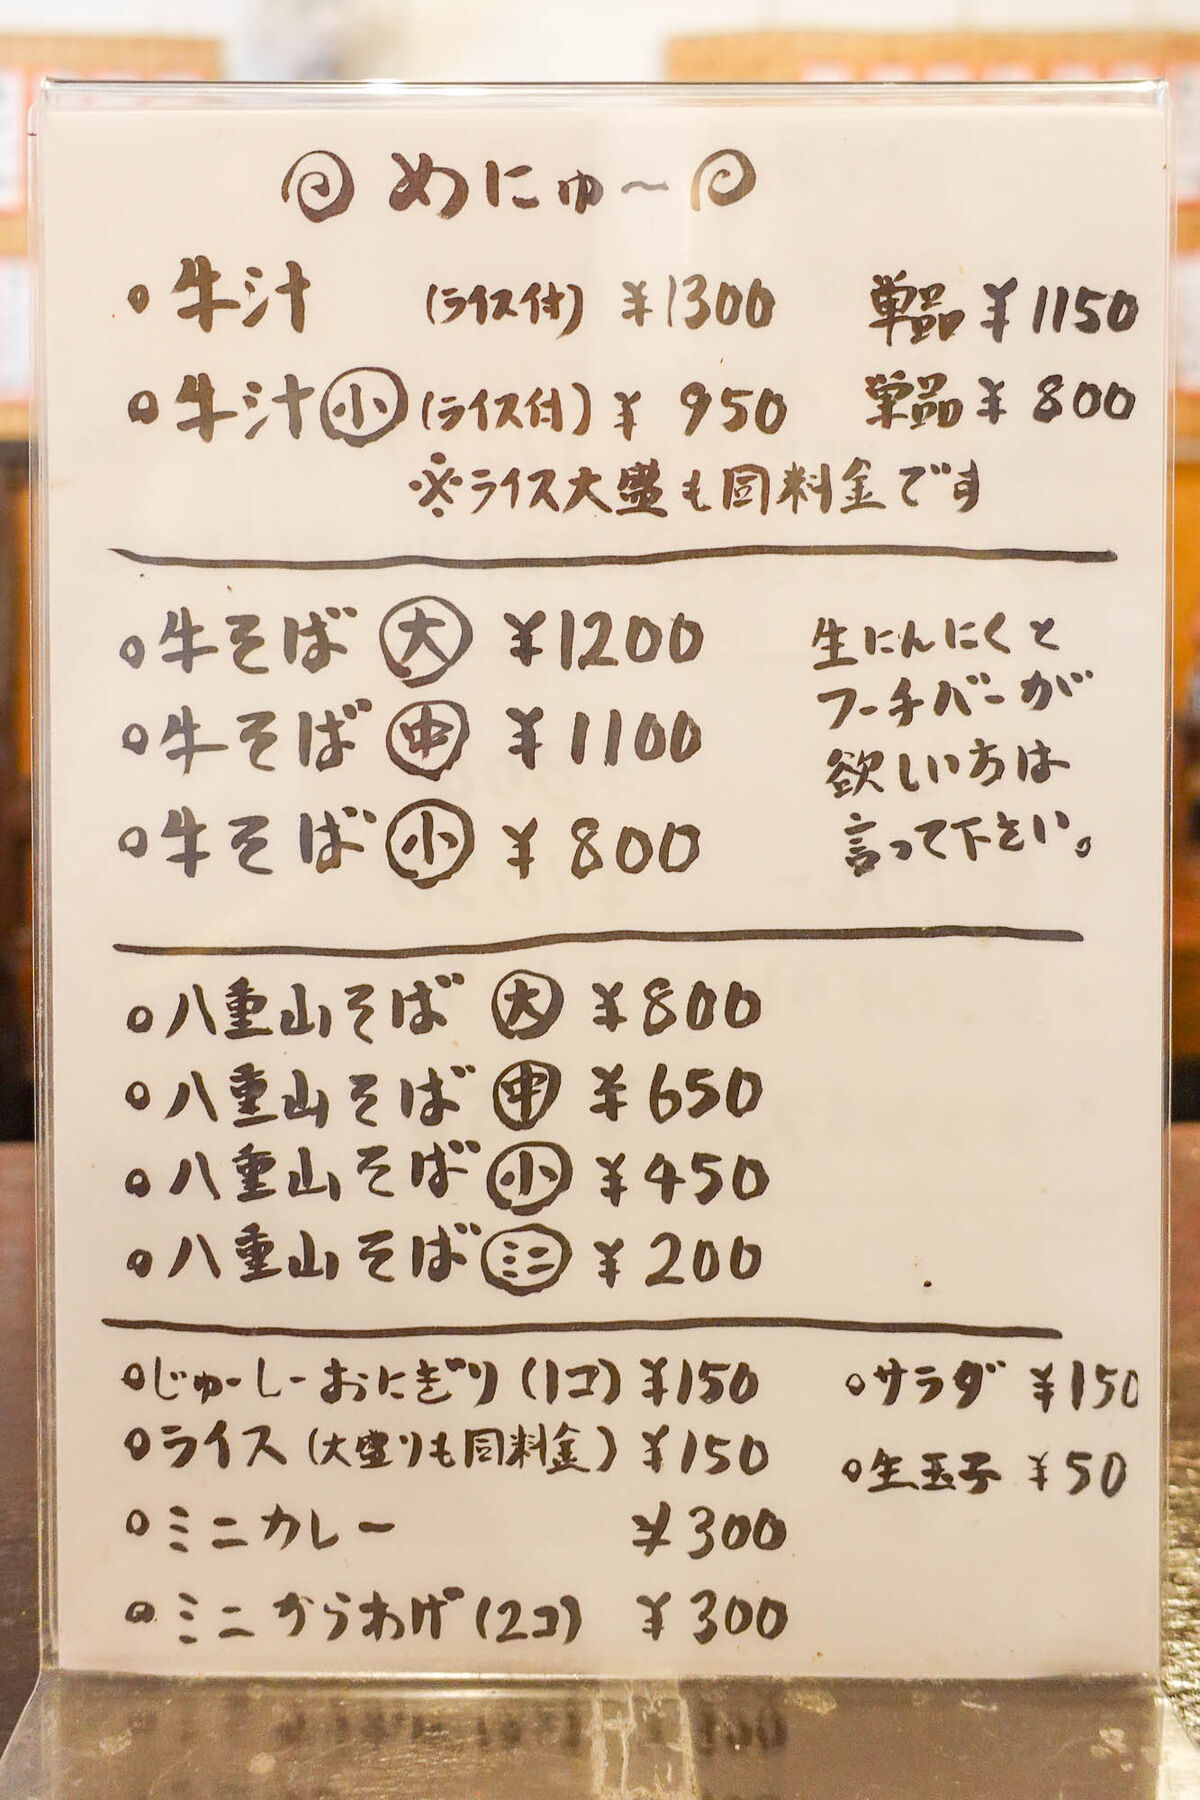 めにゅ〜
○牛汁 (ライス付) ¥1300 単品 ¥1150
○牛汁㊙小 (ライス付) ¥950 単品 ¥800
※ライス大盛も同料金です
○牛そば 大 ¥1200
○牛そば 中 ¥1100
○牛そば 小 ¥800
生にんにくと
フーチバーが
欲しい方は
言って下さい。
○八重山そば 大 ¥800
○八重山そば 中 ¥650
○八重山そば 小 ¥450
○八重山そば ミニ ¥200
○じゅーしーおにぎり (1コ) ¥150
○ライス (大盛りも同料金) ¥150
○ミニカレー ¥300
○ミニからあげ (2コ) ¥300
○サラダ ¥150
○生玉子 ¥50